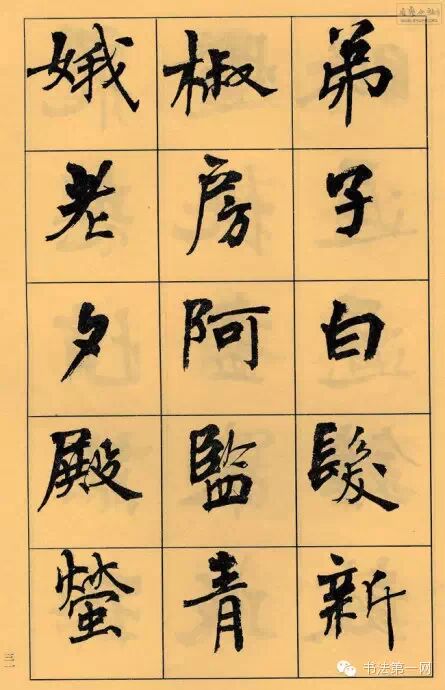 弟子白髮新
椒房阿監青
娥老夕殿螢
三一
书法第一网